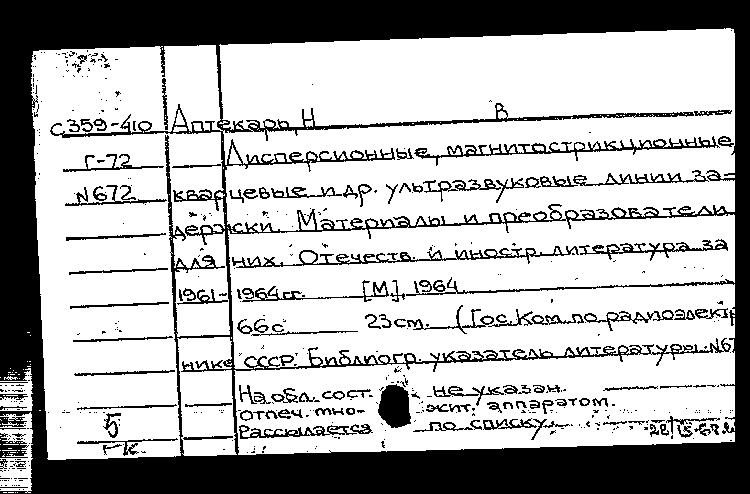 с.359-410 Аптекарь, Н В
Г-72 Дисперсионные, магнитострикционные,
N672 кварцевые и др. ультразвуковые линии за=
держки. Материалы и преобразователи
для них. Отечеств. и иностр. литература за
1961-1964гг. [М.], 1964.
66с 23см. (Гос.Ком.по радиоэлектро
нике СССР. Библиогр. указатель литературы. N67
На обл. сост. не указан.
отпеч. мно- жит. аппаратом.
Рассылается по списку.
5
Гк.